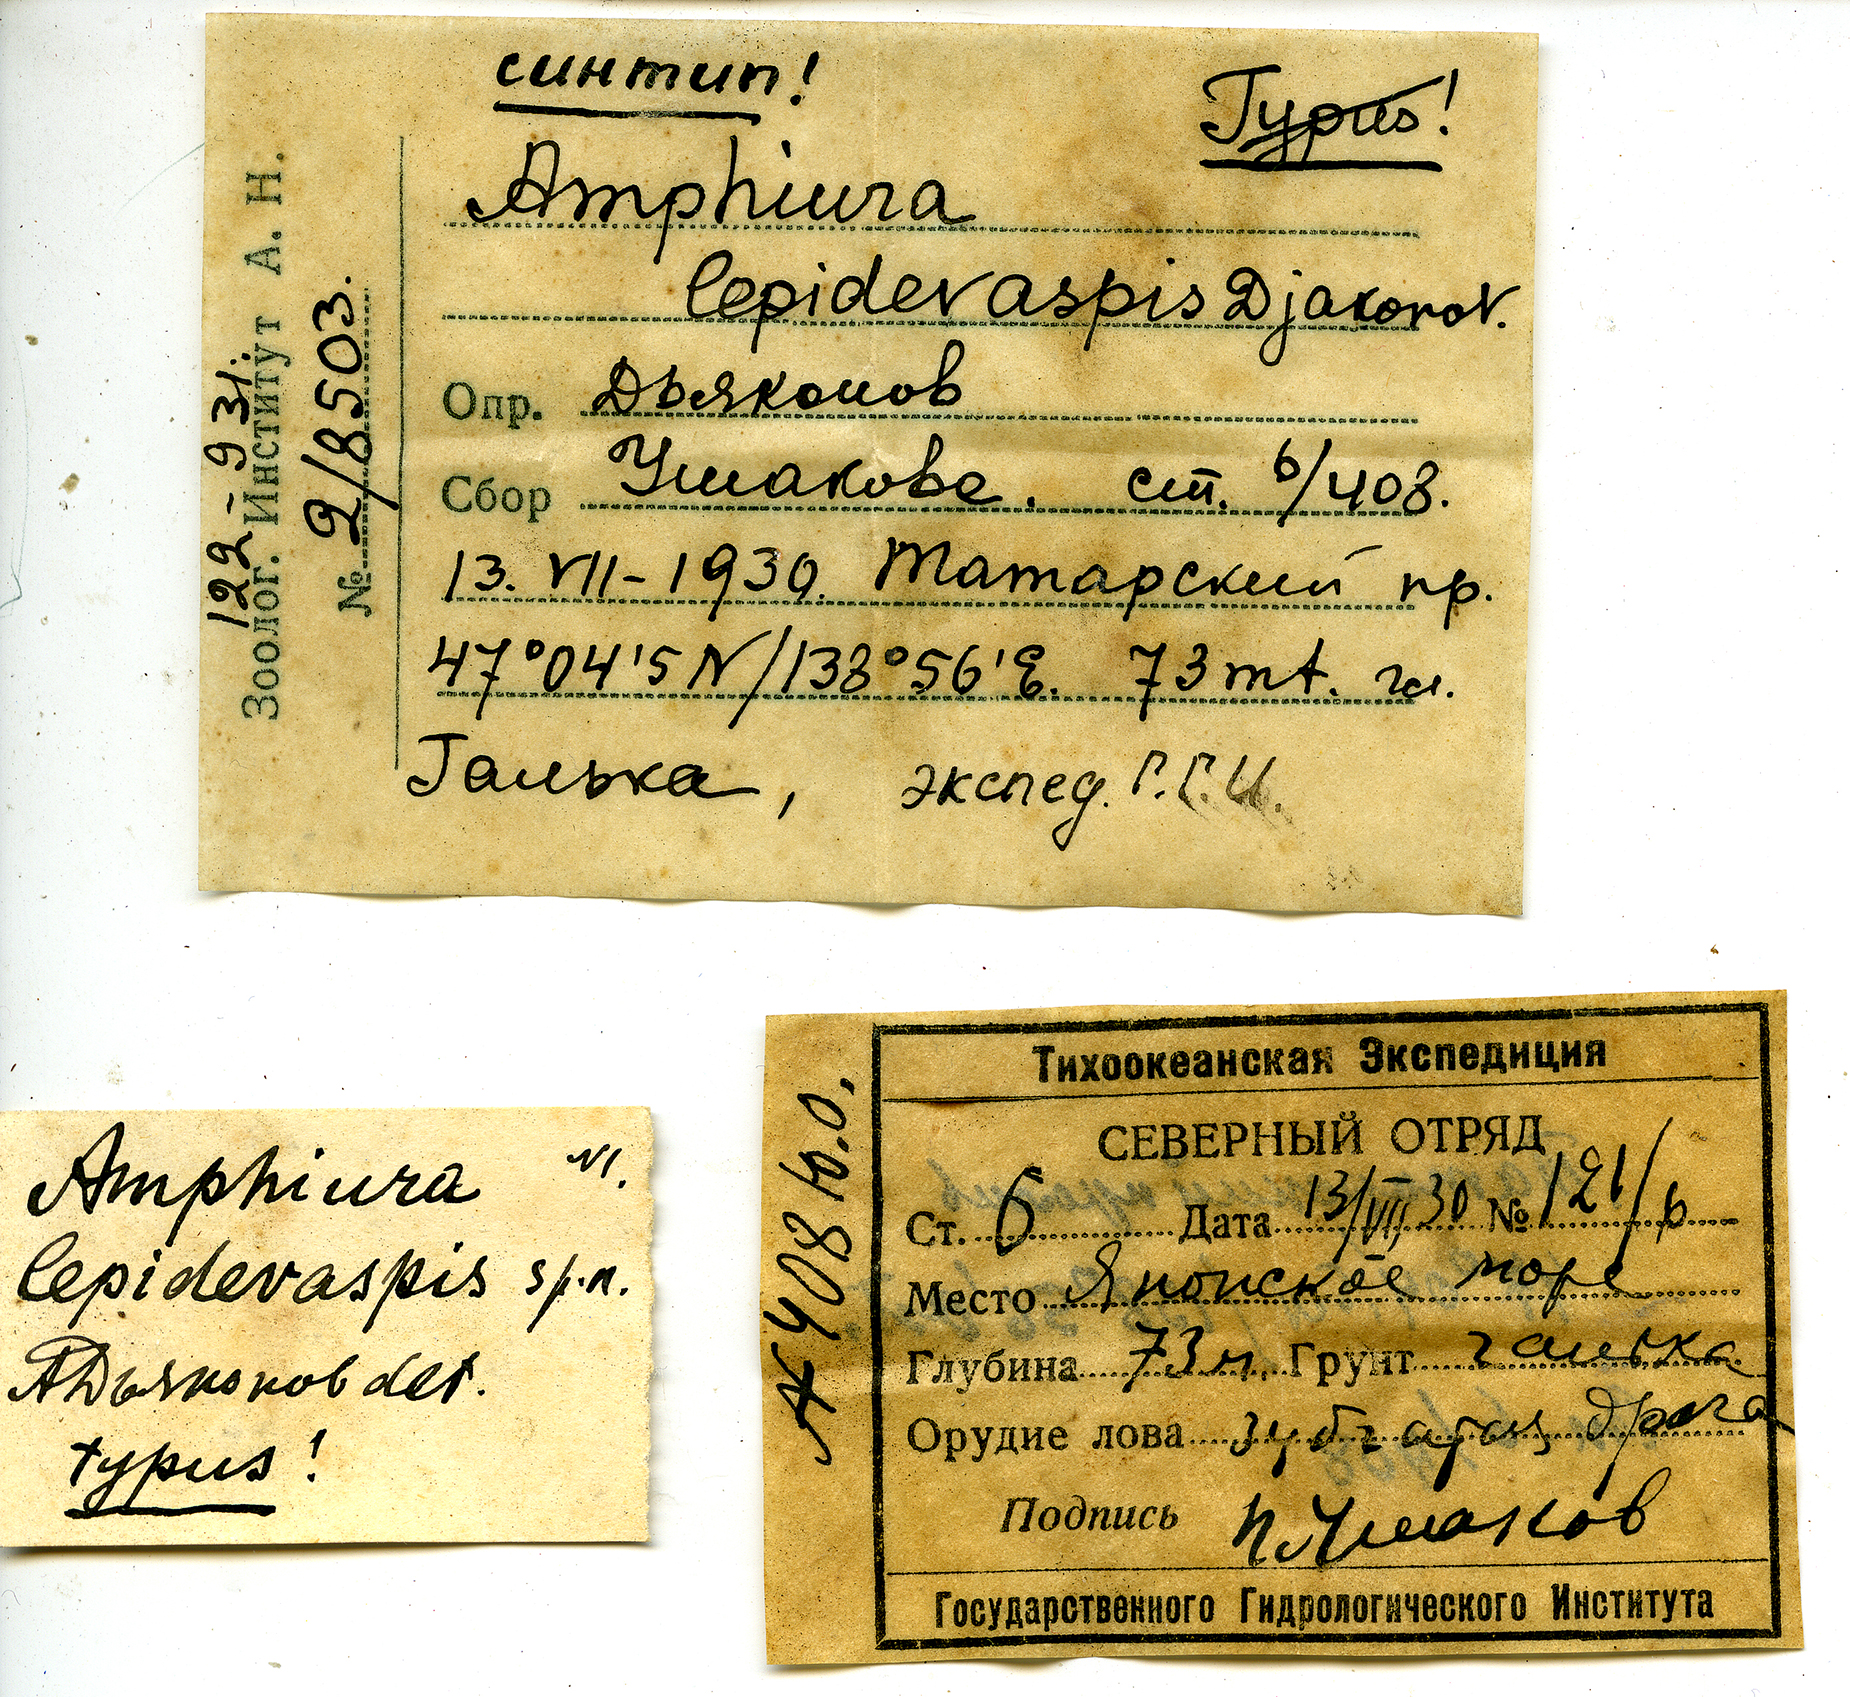 синтип!
Typus!
Amphiura
lepidevaspis Djakonov.
Опр. Дьяконов
Сбор Ушакова. ст. 6/408.
13. VII-1930. Татарский пр.
47°04'5 N/138°56'E. 73 mt. гл.
Галька, экспед. Г.Г.И.
122-931.
Зоолог. Институт А. Н.
№ 2/8503.
Amphiura №1.
lepidevaspis sp.n.
АДьяконов det.
typus!
408
Тихоокеанская Экспедиция
СЕВЕРНЫЙ ОТРЯД
Ст. 6 Дата 13/VII 30 № 121/6
Место Японское море
Глубина 73 м. Грунт галька
Орудие лова зубчатая драга
Подпись П.Ушаков
Государственного Гидрологического Института